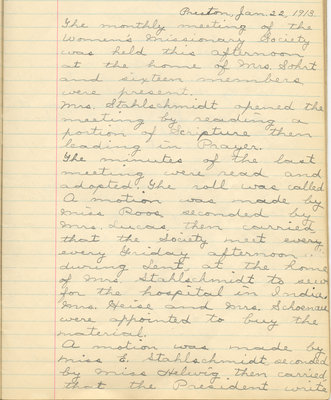 Preston, Jan. 22, 1913.
The monthly meeting of the
Women's Missionary Society
was held this afternoon
at the home of Mrs. Sohrt
and sixteen members
were present.
Mrs. Stahlschmidt opened the
meeting by reading a
portion of Scripture then
leading in Prayer.
The minutes of the last
meeting were read and
adopted. The roll was called
A motion was made by
Miss Roos, seconded by
Mrs. Lucas, then carried
that the Society meet every
every Friday afternoon
during Lent at the home
of Mrs. Stahlschmidt to sew
for the hospital in India.
Mrs. Heise and Mrs. Schoenau
were appointed to buy the
material.
A motion was made by
Miss E. Stahlschmidt, seconded
by Miss Helwig then carried,
that the President write